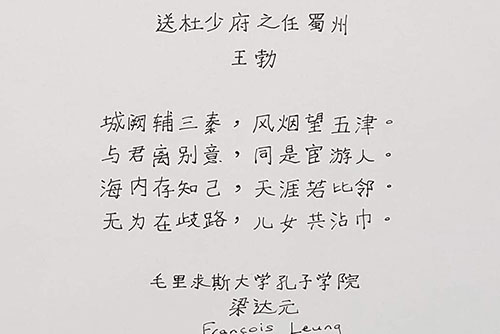 送杜少府之任蜀州
王勃
城阙辅三秦，风烟望五津。
与君离别意，同是宦游人。
海内存知己，天涯若比邻。
无为在歧路，儿女共沾巾。
毛里求斯大学孔子学院
梁达元
François Leung